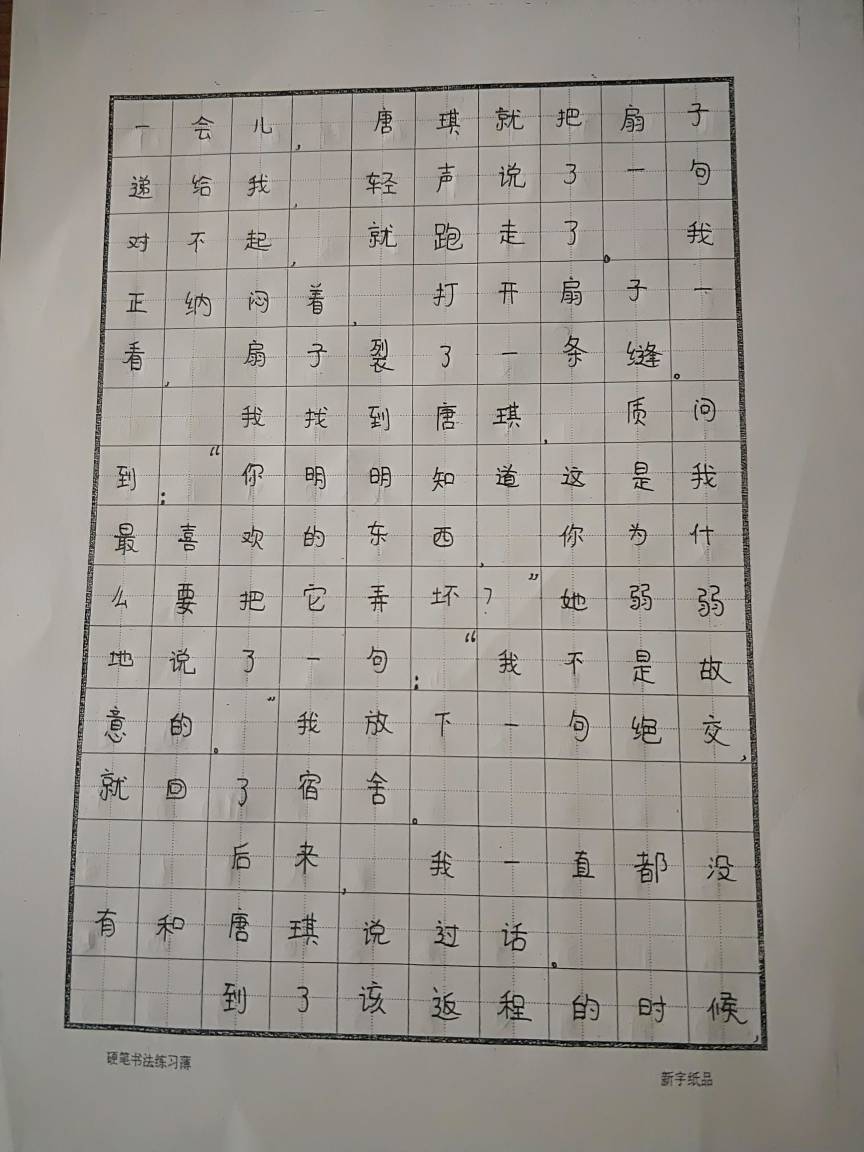 一会儿，唐琪就把扇子
递给我，轻声说了一句
对不起，就跑走了。我
正纳闷着，打开扇子一
看，扇子裂了一条缝。
我找到唐琪，质问
到：“你明明知道这是我
最喜欢的东西，你为什
么要把它弄坏？”她弱弱
地说了一句：“我不是故
意的。”我放下一句绝交，
就回了宿舍。
后来，我一直都没
有和唐琪说过话。
到了该返程的时候，
硬笔书法练习薄
新宇纸品